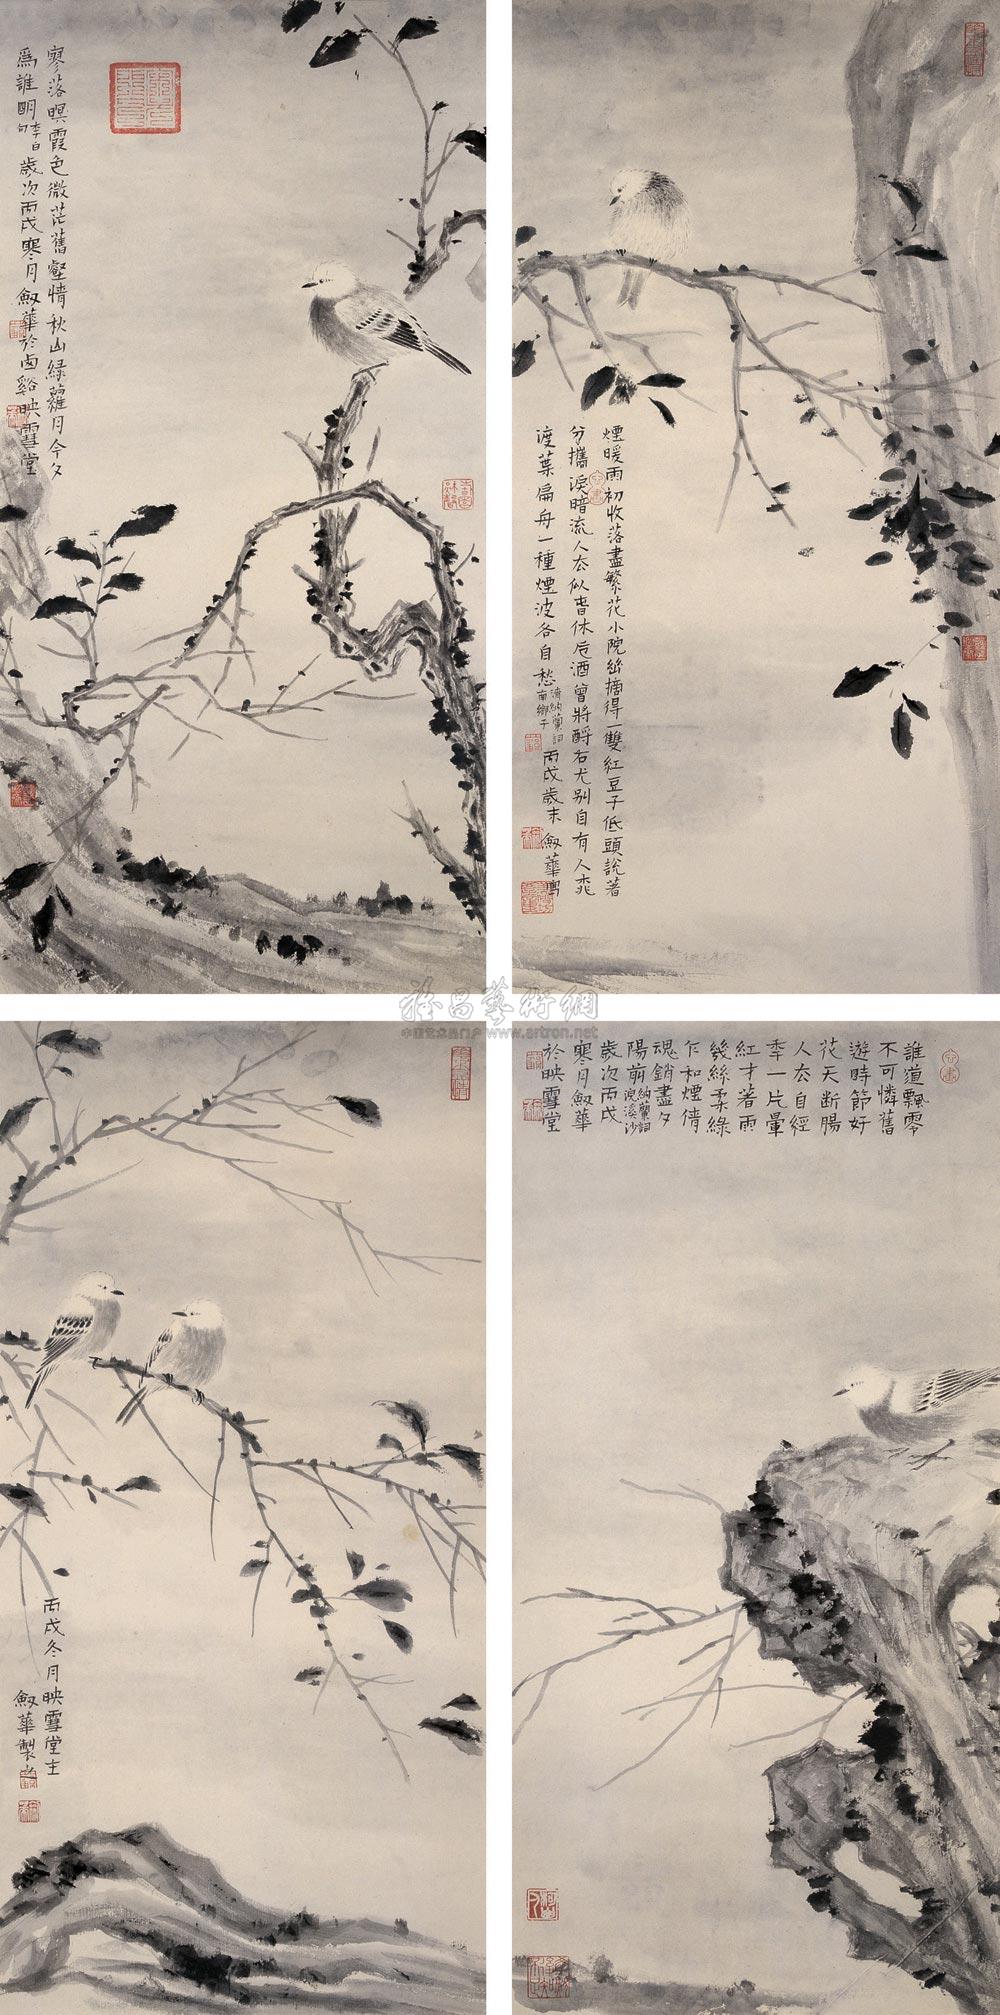 寥落暝霞色微茫舊壑情秋山綠蘿月今夕
爲誰明李白句歲次丙戌寒月劍華於卤谿映雪堂
煙暖雨初收落盡繁花小院幽摘得一雙紅豆子低頭說著
分攜淚暗流人去似春休卮酒曾將酹石尤別自有人桃
渡葉扁舟一種煙波各自愁
清納蘭詞
南鄉子
丙戌歲末劍華寫
雅昌藝術網
中国艺术品门户 www.artron.net
丙戌冬月映雪堂主
劍華製
誰道飄零
不可憐舊
遊時節好
花天断腸
人去自經
季一片暈
紅才著雨
幾絲柔綠
乍和煙倩
魂銷盡夕
陽前
納蘭詞
浣溪沙
歲次丙戌
寒月劍華
於映雪堂